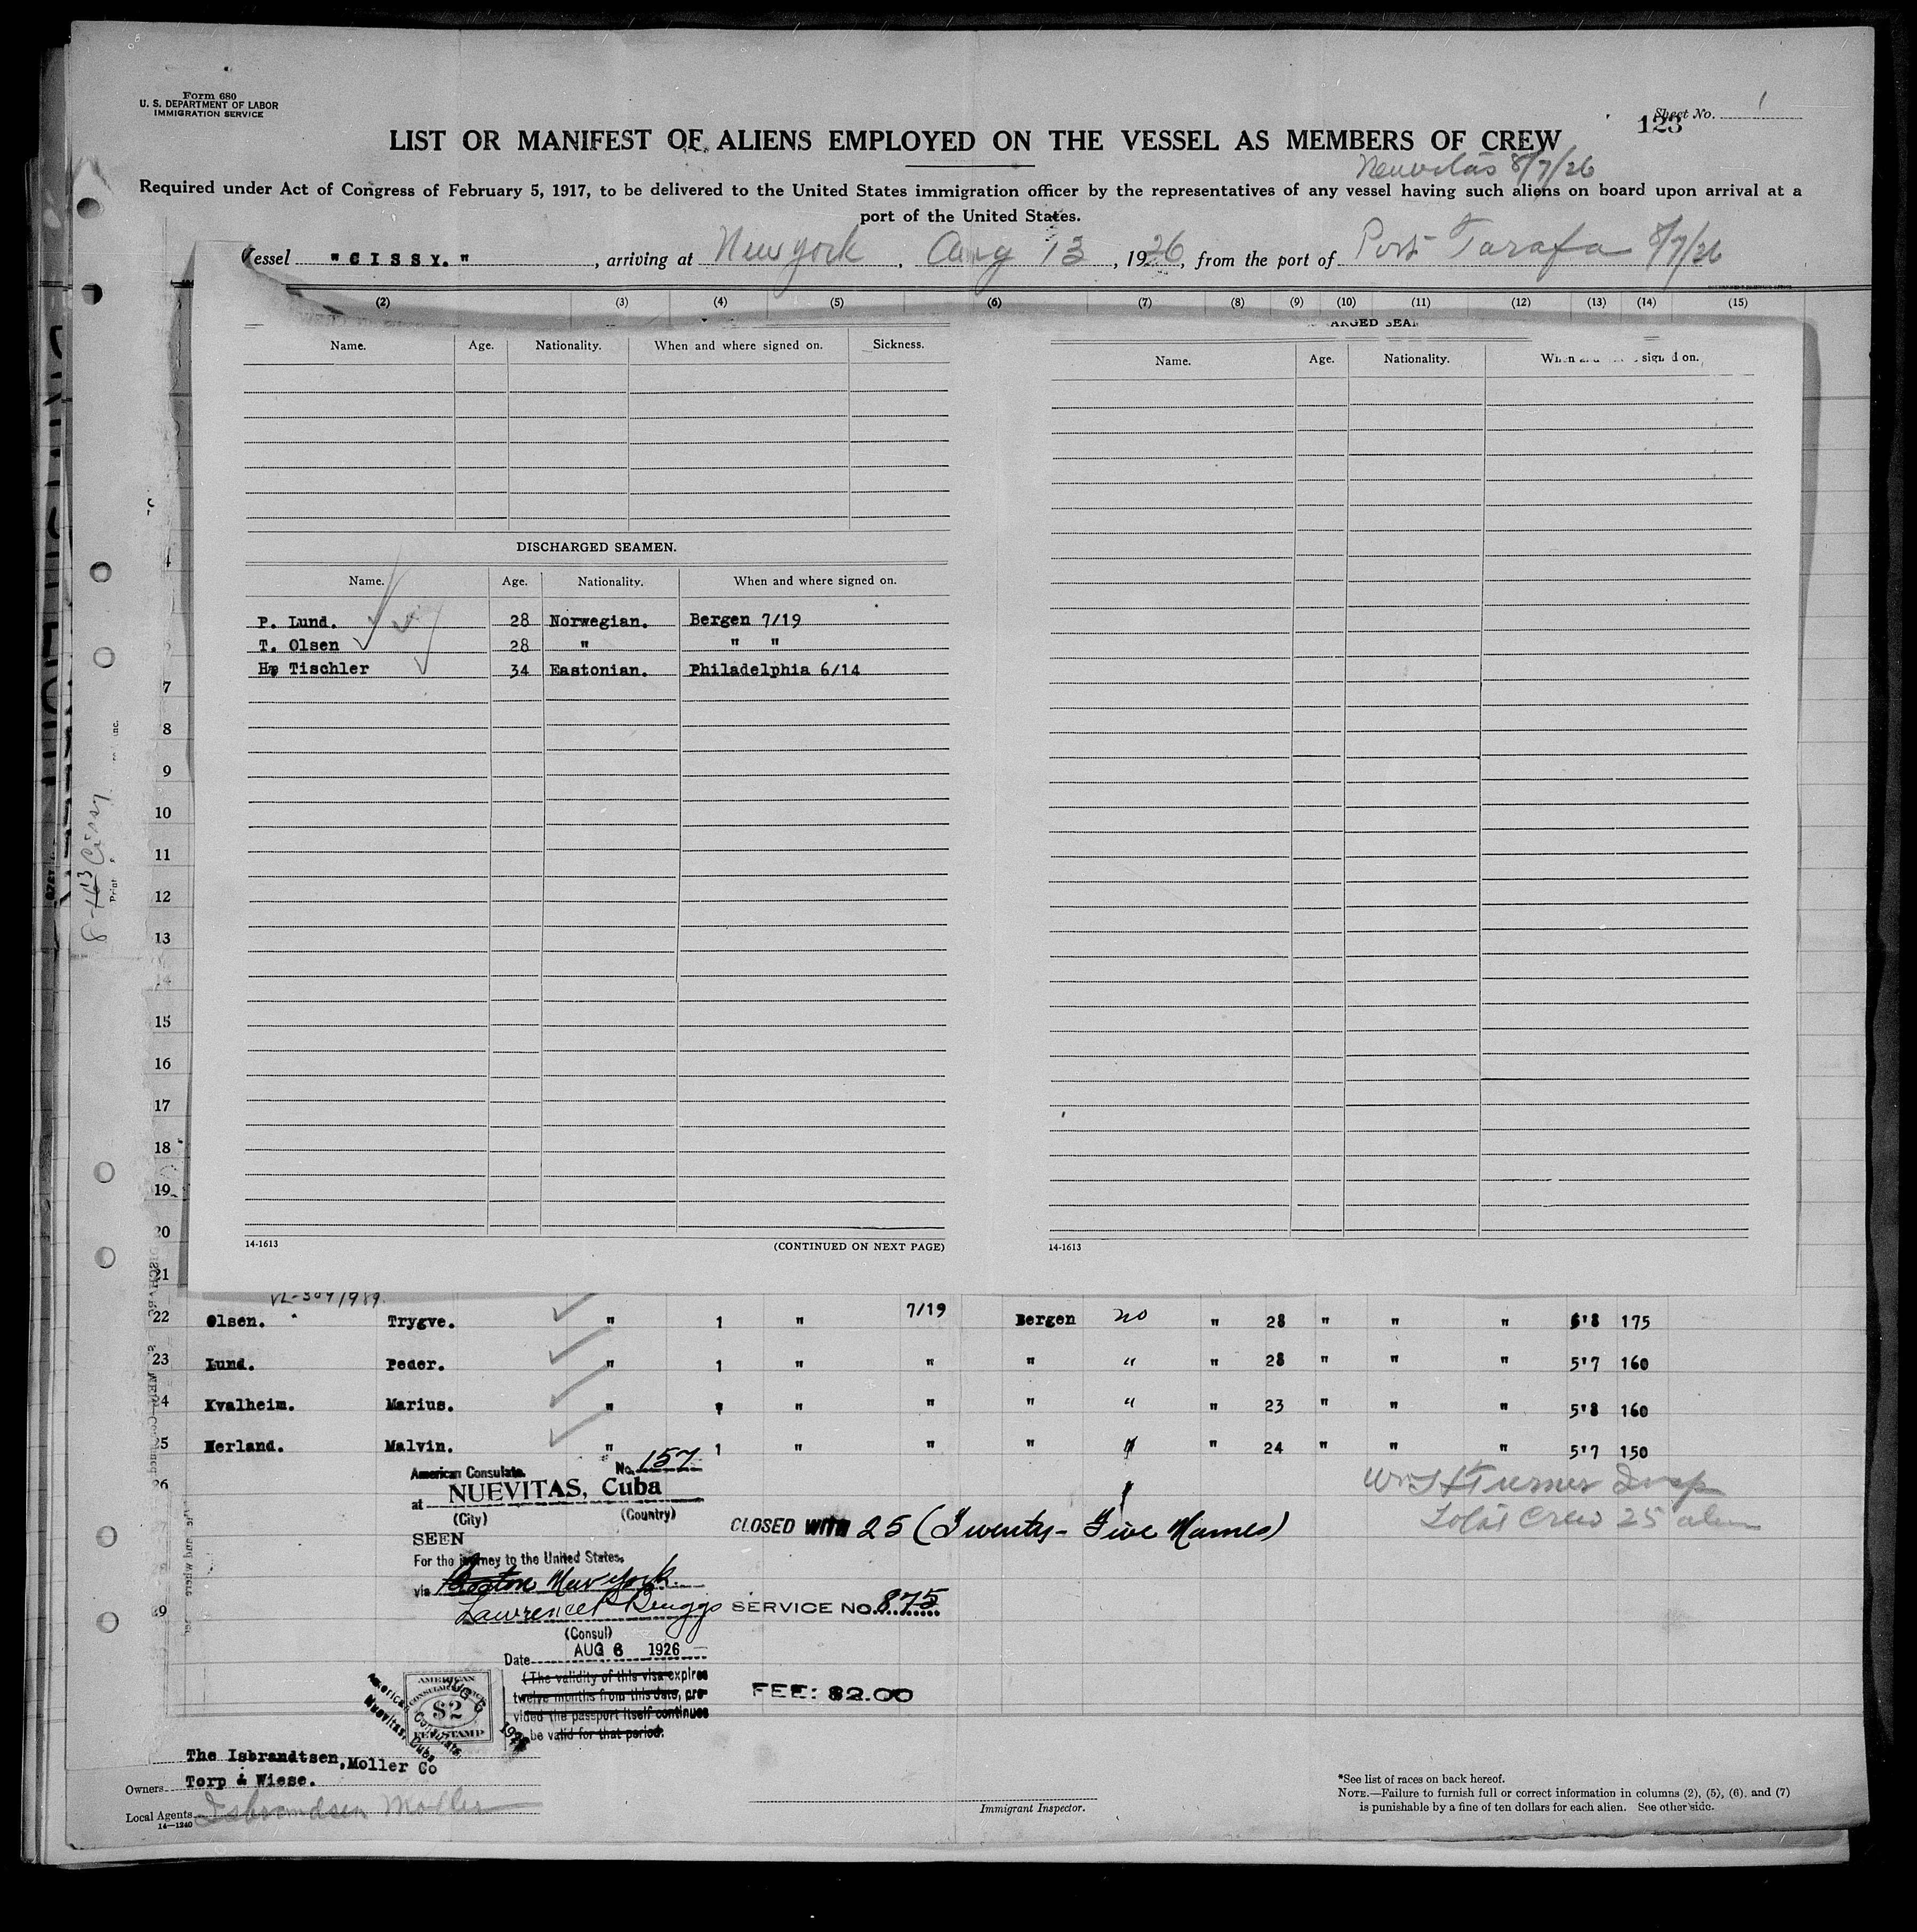 Form 680
U. S. DEPARTMENT OF LABOR
IMMIGRATION SERVICE
Sheet No. 1
123
LIST OR MANIFEST OF ALIENS EMPLOYED ON THE VESSEL AS MEMBERS OF CREW
Nuevitas 8/7/26
Required under Act of Congress of February 5, 1917, to be delivered to the United States immigration officer by the representatives of any vessel having such aliens on board upon arrival at a
port of the United States.
Vessel "CISSY." , arriving at New york , Aug 13 , 1926, from the port of Port Tarafa 8/7/26
(2) (3) (4) (5) (6) (7) (8) (9) (10) (11) (12) (13) (14) (15)
Name. Age. Nationality. When and where signed on. Sickness.
Name. Age. Nationality.
DISCHARGED SEAMEN.
Name. Age. Nationality. When and where signed on.
P. Lund. 28 Norwegian. Bergen 7/19
T. Olsen 28 " " "
H. Tischler 34 Eastonian. Philadelphia 6/14
4
7
8
9
10
11
12
13
15
16
17
18
19
20
21
8-13 Cissy
14-1613 (CONTINUED ON NEXT PAGE)
14-1613
22 Olsen. Trygve. " 1 " 7/19 Bergen no " 28 " " " 5'8 175
23 Lund. Peder. " 1 " " " " " 28 " " " 5'7 160
24 Kvalheim. Marius. " 1 " " " " " 23 " " " 5'8 160
25 Herland. Malvin. " 1 " " " " " 24 " " " 5'7 150
26
American Consulate. No. 157
at NUEVITAS, Cuba
(City) (Country)
SEEN
For the journey to the United States.
via Boston New York.
Lawrence P Briggs
(Consul)
Date AUG 6 1926
(The validity of this visa expires
twelve months from this date, pro-
vided the passport itself continues
be valid for that period.
CLOSED WITH 25 (Twenty-Five Names)
Total Crew 25
SERVICE NO. 875
FEE: $2.00
AMERICAN
CONSULAR SERVICE
$2
FEE STAMP
American Consulate.
Nuevitas, Cuba
AUG 6
1926
The Isbrandtsen, Moller Co
Owners Torp & Wiese.
Local Agents Isbrandsen Moller
14-1240
Immigrant Inspector.
*See list of races on back hereof.
NOTE.—Failure to furnish full or correct information in columns (2), (5), (6), and (7)
is punishable by a fine of ten dollars for each alien. See other side.